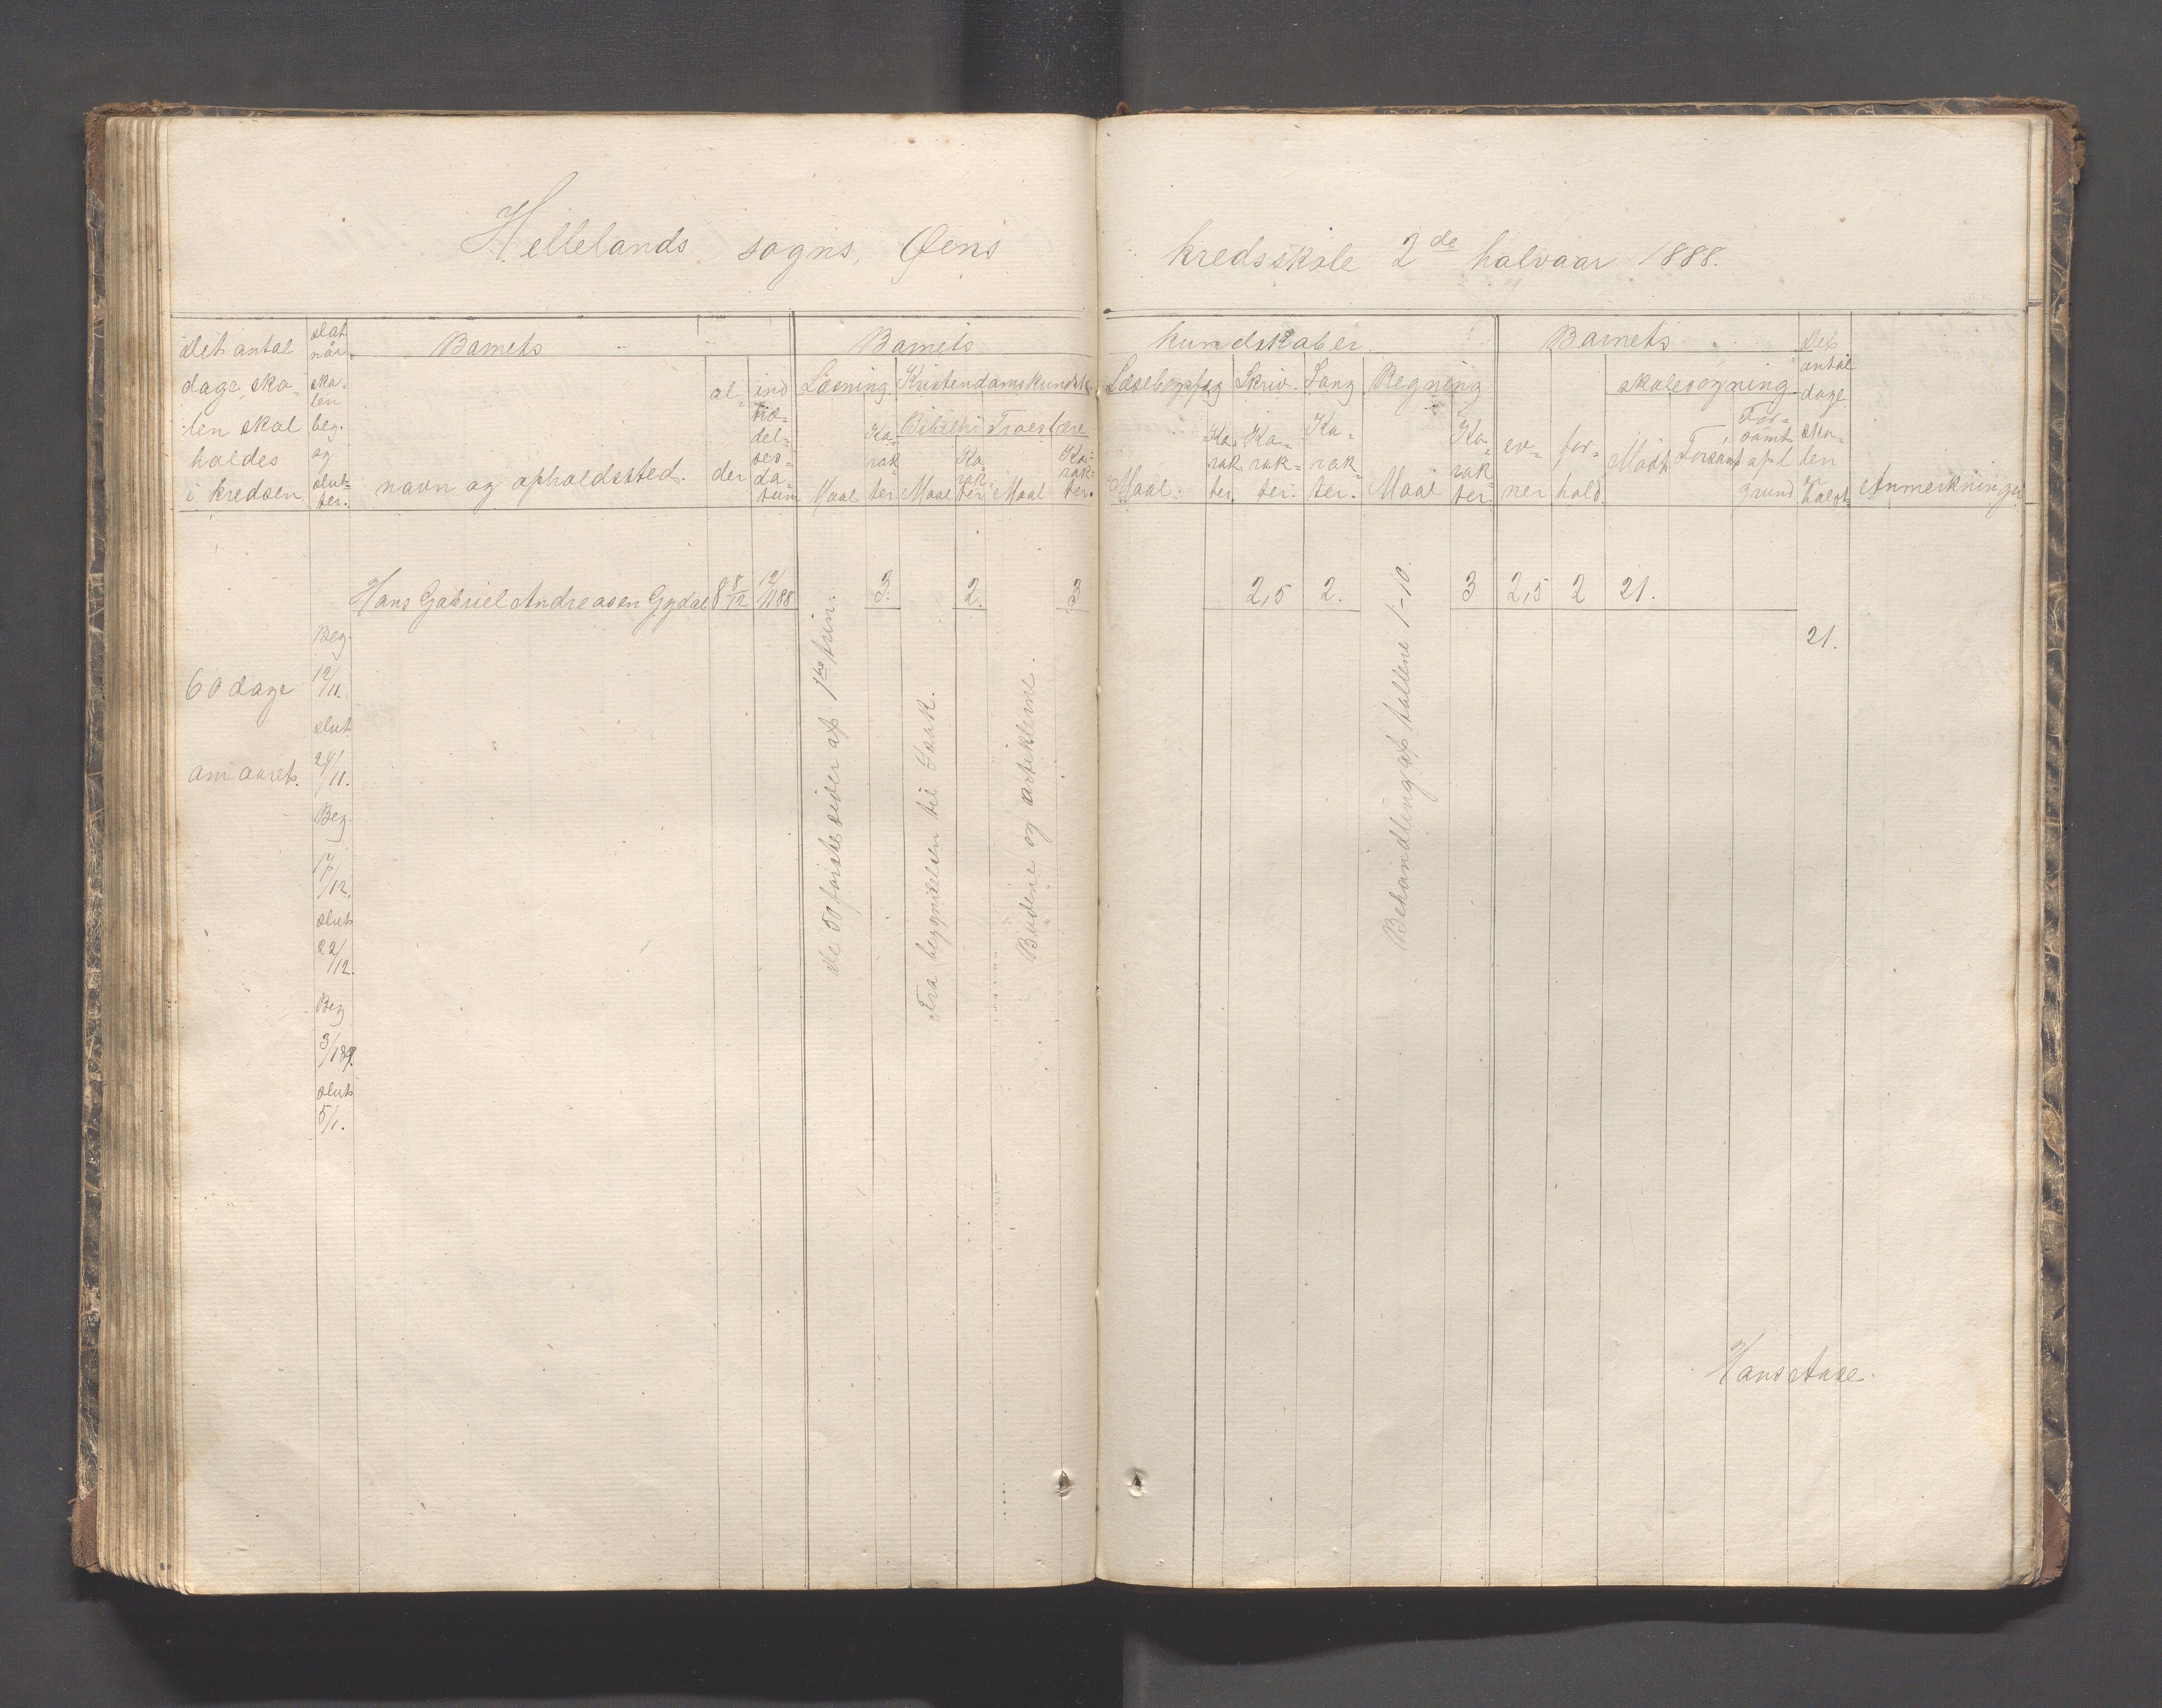 Hellelands sogns, Øens kredsskole 2de halvaar 1888.
Det antal dage, skolen skal holdes i kredsen.
Dat. når skolen beg. og slutter.
Barnets
navn og opholdssted.
alder
indtrædelsesdatum
Barnets kundskaber
Læsning
Maal
Karakter.
Kristendomskundsk.
Bibelhi
Maal
Karakter
Troeslære
Maal
Karakter.
Læsebogsfag
Maal.
Karakter.
Skriv.
Karakter.
Sang
Karakter.
Regning
Maal
Karakter.
Barnets
evner
forhold.
skolesøgning.
Mødt
Forsømt
Forsømt af l grund.
Det antal dage skolen er holdt.
Anmerkninger
Hans Gabriel Andreasen Gydal 8 8/12 12/11 88 3. 2. 3 2,5 2. 3 2,5 2 21.
21.
60 dage
om aaret.
Beg.
12/11.
slut
24/11.
Beg.
17/12.
slut
22/12.
Beg
3/1 89.
slut
5/1.
de 50 første sider af 1ste trin.
Fra begyndelsen til Isak.
Budene og artiklerne.
Behandling af tallene 1-10.
Hans Aase.